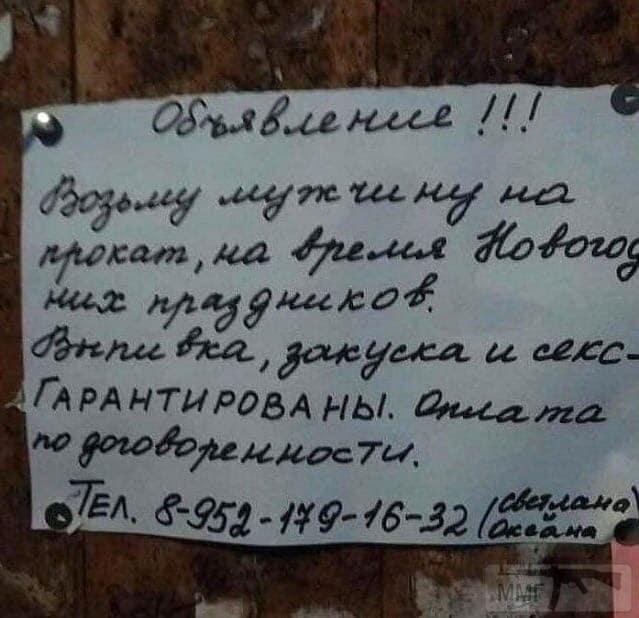 Объявление !!!
Возьму мужчину на
прокат, на время Новогод
них праздников.
Выпивка, закуска и секс-
ГАРАНТИРОВАНЫ. Оплата
по договоренности.
ТЕЛ. 8-952-179-16-32 (Светлана)
Оксана
ММГ